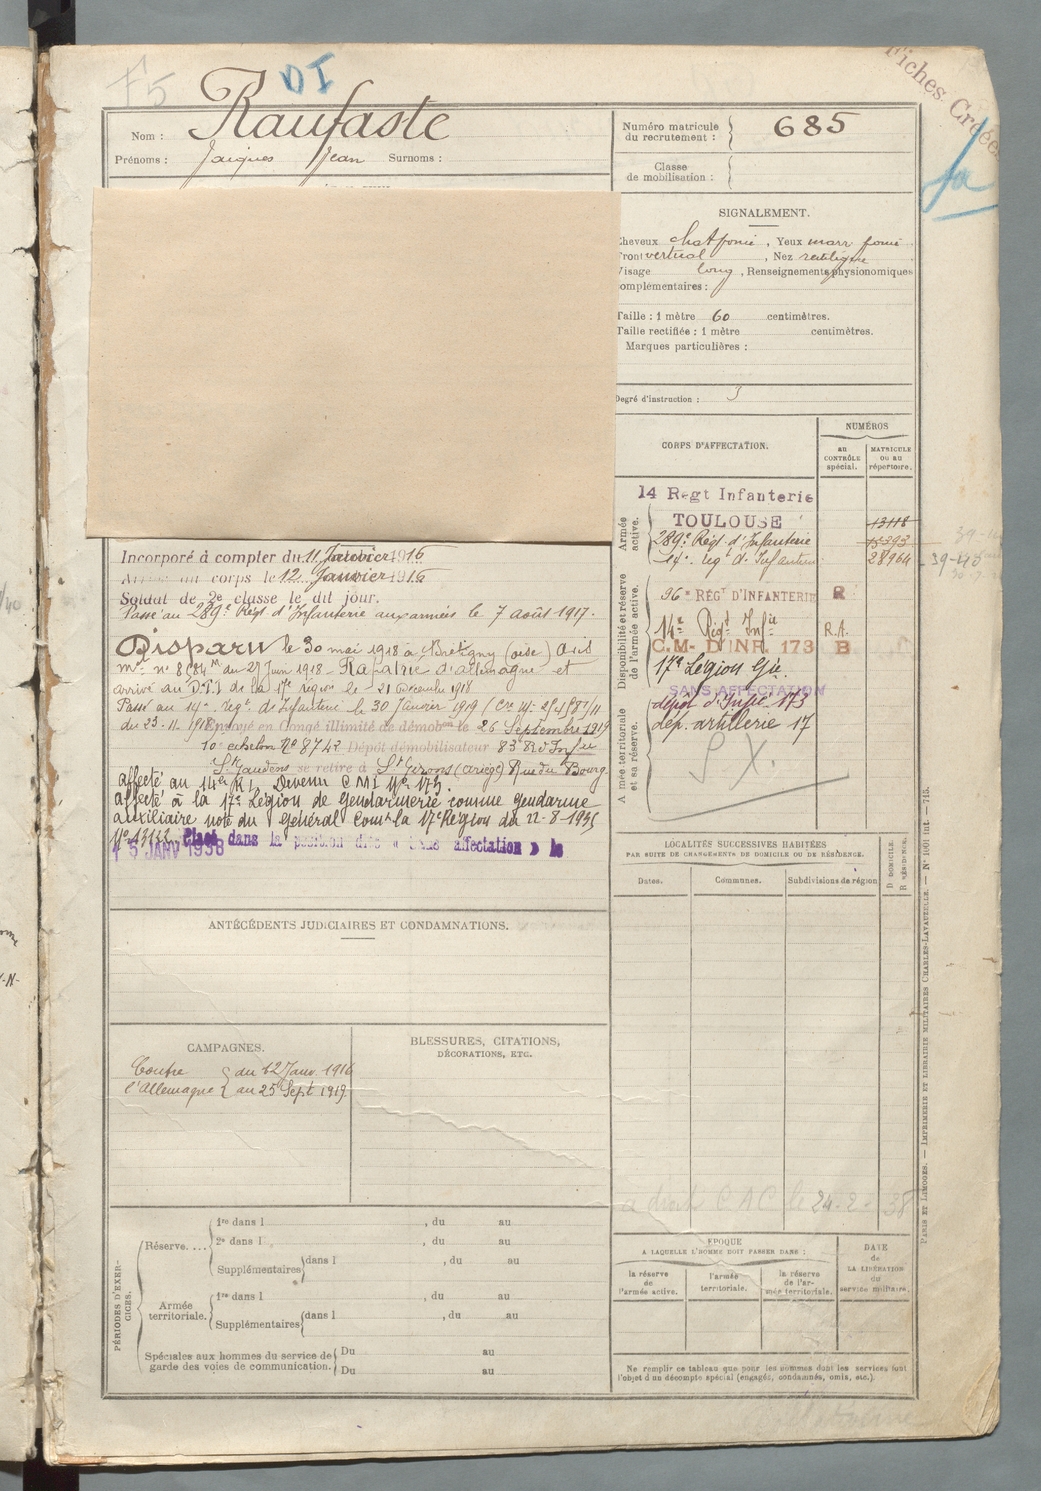 F5
DI
Fiches Créées
Nom : Raufaste
Prénoms : Jacques Jean Surnoms :
Numéro matricule du recrutement : 685
Classe de mobilisation :
SIGNALEMENT.
Cheveux chat foncé, Yeux marr foncé
Front vertical, Nez rectiligne
Visage long, Renseignements physionomiques
complémentaires :
Taille : 1 mètre 60 centimètres.
Taille rectifiée : 1 mètre centimètres.
Marques particulières :
Degré d'instruction : 3
CORPS D'AFFECTATION.
NUMÉROS
au CONTRÔLE spécial.
MATRICULE OU AU répertoire.
Armée active.
14 Regt Infanterie
TOULOUSE 13118
289e Régt d'Infanterie 15393
14e reg t d'Infanterie 28964
39-40
Disponibilité et réserve de l'armée active.
96e RÉGT D'INFANTERIE R
14e Régt Infie R.A.
C.M. D'INF. 173 B
17e Légion Gie
SANS AFFECTATION
Armée territoriale et sa réserve.
dépôt d'Infie 173
dép. artillerie 17
Incorporé à compter du 11 Janvier 1916
Arrivé au corps le 12 Janvier 1916
Soldat de 2e classe le dit jour.
Passé au 289e Régt d'Infanterie aux armées le 7 août 1917.
Disparu le 30 mai 1918 à Brétigny (oise) Avis
mel no 8684 M du 27 Juin 1918 - Rapatrié d'allemagne et
arrivé au D.T.I de la 17e région le 21 Decembre 1918
Passé au 14e regt d'Infanterie le 30 Janvier 1919
du 23-11-1918 Envoyé en Congé illimité de démobon le 26 Septembre 1919
10e echelon No 8742 Dépôt démobilisateur 83e R d'Infie
St Gaudens se retire à St Girons (ariège) Rue du Bourg
affecté au 14er R.I. Devenu C M I No 173.
affecté à la 17e Légion de Gendarmerie comme Gendarme
auxiliaire note du Général Comt la 17e Région du 22-8-1935
No 13122 Placé dans la position dite « sans affectation » le
15 JANV 1938
ANTÉCÉDENTS JUDICIAIRES ET CONDAMNATIONS.
CAMPAGNES.
Contre l'Allemagne { du 12 Janv. 1916
au 25 Sept 1919
BLESSURES, CITATIONS,
DÉCORATIONS, ETC.
LOCALITÉS SUCCESSIVES HABITÉES
PAR SUITE DE CHANGEMENTS DE DOMICILE OU DE RÉSIDENCE.
Dates.
Communes.
Subdivisions de région
D DOMICILE.
R RÉSIDENCE.
a droit C A C le 24-2-38
PÉRIODES D'EXERCICES.
Réserve....
1re dans l , du au
2e dans l , du au
Supplémentaires dans l , du au
Armée territoriale.
1re dans l , du au
Supplémentaires dans l , du au
Spéciales aux hommes du service de
garde des voies de communication.
Du au
Du au
EPOQUE
A LAQUELLE L'HOMME DOIT PASSER DANS :
la réserve de l'armée active.
l'armée territoriale.
la réserve de l'armée territoriale.
DATE de LA LIBÉRATION du service militaire.
Ne remplir ce tableau que pour les hommes dont les services font
l'objet d'un décompte spécial (engagés, condamnés, omis, etc.).
PARIS ET LIMOGES. — IMPRIMERIE ET LIBRAIRIE MILITAIRES CHARLES-LAVAUZELLE. — N° 1001 int. — 715.